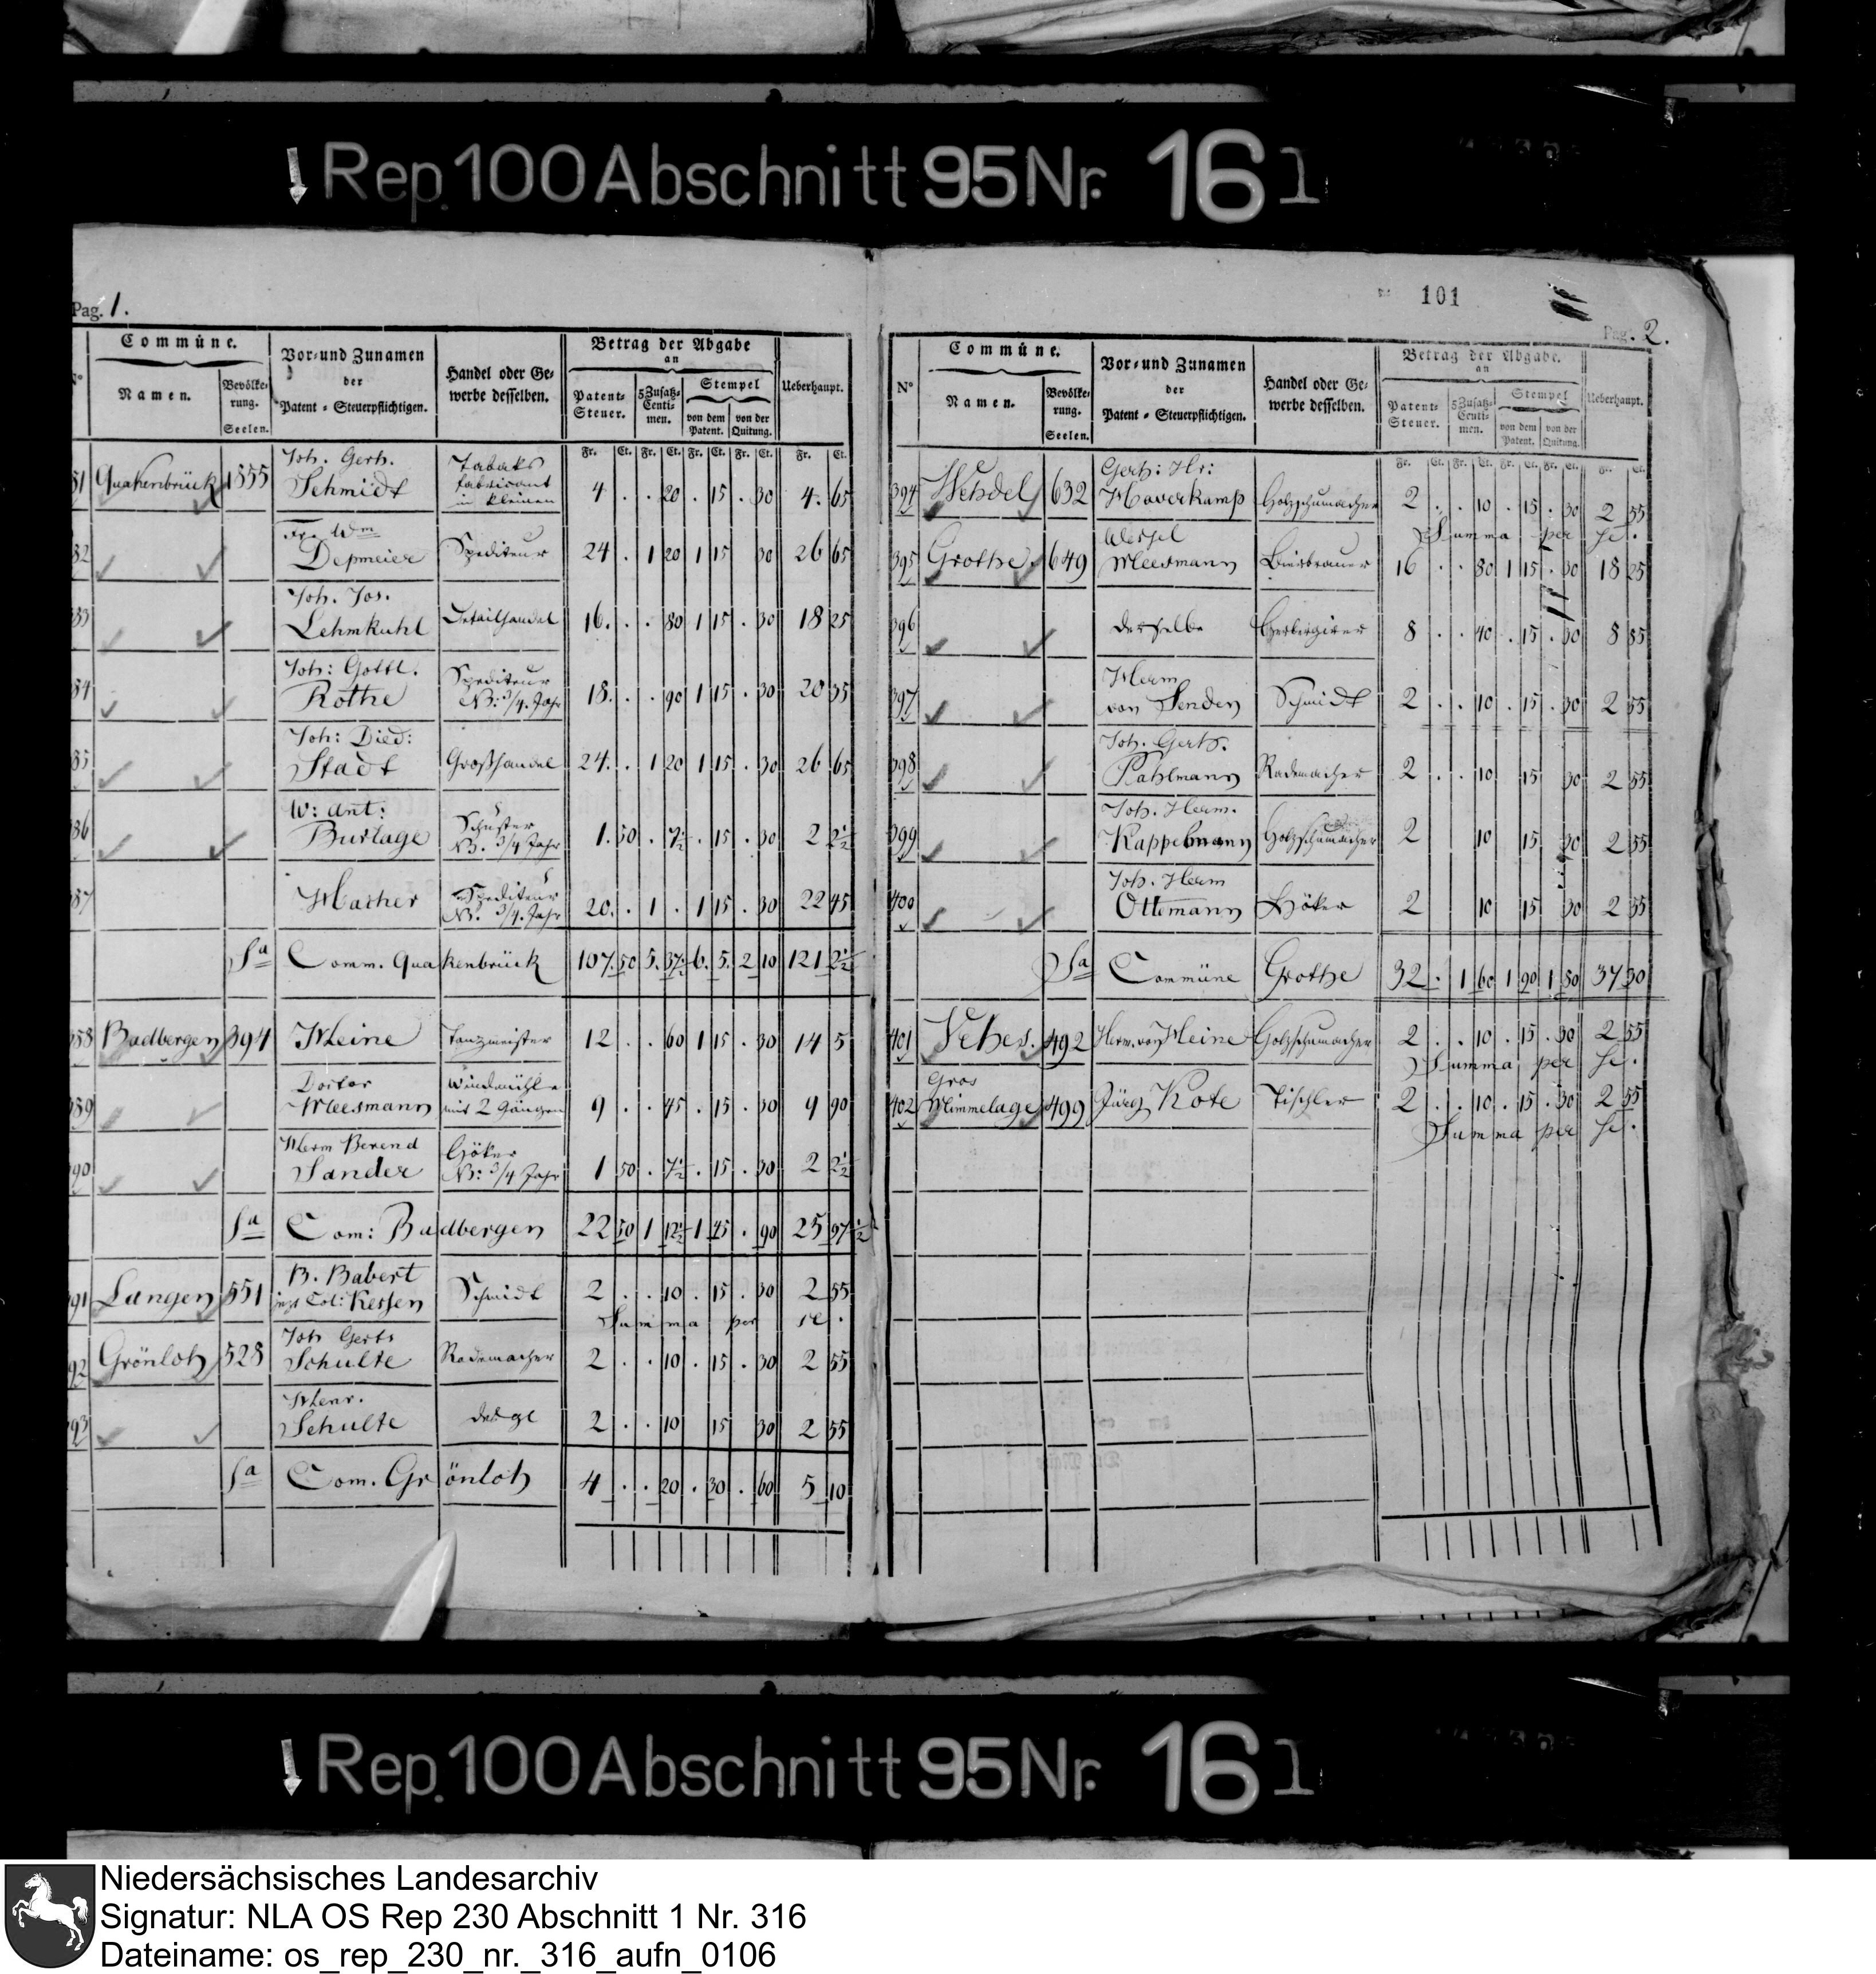 Rep. 100 Abschnitt 95 Nr. 16 1
Pag. 1.
N° Commüne. Vor- und Zunamen der Patent-Steuerpflichtigen. Handel oder Gewerbe desselben. Betrag der Abgabe an Ueberhaupt.
Namen. Bevölkerung. Seelen. Patent-Steuer. 5 Zusatz-Centimen. Stempel von dem Patent. von der Quitung.
Fr. Ct. Fr. Ct. Fr. Ct. Fr. Ct. Fr. Ct.
81 Quakenbrück 1855 Joh. Gerh. Schmidt Tabaks fabricant in kleinen 4 . . 20 . 15 . 30 4. 65
82 Fr. Wm Depmeier Spediteur 24 . 1 20 1 15 30 26 65
83 Joh. Jos. Lehmkuhl Detailhandel 16. . . 80 1 15 . 30 18 25
84 Joh: Gottl. Rothe Spediteur NB: 3/4. Jahr 18. . . 90 1 15 . 30 20 35
85 Joh: Died: Stadt Großhandel 24. . 1 20 1 15 . 30 26 65
86 W: Ant: Burlage Schuster NB. 3/4 Jahr 1. 50 . 7½ . 15 . 30 2 2½
87 Spediteur NB. 3/4. Jahr 20. . 1 . 1 15 . 30 22 45
Sa Comm. Quakenbrück 107. 50 5. 37½ 6. 5. 2 10 121 2½
88 Badbergen 394 Meine Tanzmeister 12 . . 60 1 15 . 30 14 5
89 Doctor Meesmann Windmühle mit 2 Gängen 9 . . 45 . 15 . 30 9 90
90 Herm Berend Sander Höker NB: 3/4 Jahr 1 50 . 7½ . 15 . 30 2 2½
Sa Com: Badbergen 22 50 1 12½ 1 45 . 90 25 97½
91 Langen 551 B. Babert Kessen Schmidt 2 . . 10 . 15 . 30 2 55
Summa per se.
92 Grönloh 528 Joh Gerh Schulte Rademacher 2 . . 10 . 15 . 30 2 55
93 Henr. Schulte desgl 2 . . 10 15 30 2 55
Sa Com. Grönloh 4 . . 20 . 30 . 60 5 10
101
Pag. 2.
N° Commüne. Vor- und Zunamen der Patent-Steuerpflichtigen. Handel oder Gewerbe desselben. Betrag der Abgabe. an Ueberhaupt.
Namen. Bevölkerung. Seelen. Patent-Steuer. 5 Zusatz-Centimen. Stempel von dem Patent. von der Quitung.
Fr. Ct. Fr. Ct. Fr. Ct. Fr. Ct. Fr. Ct.
394 Wehdel 632 Gerh: Hr: Haverkamp Holzschumacher 2 . . 10 . 15 . 30 2 55
Summa per se.
395 Grothe. 649 Wessel Meesmann Bierbrauer 16 . . 80 1 15 . 30 18 25
396 derselbe Herbergirer 8 . . 40 . 15 . 30 8 85
397 Herm von Senden Schmidt 2 . . 10 . 15 . 30 2 55
398 Joh. Gerh. Pahlmann Rademacher 2 . . 10 15 30 2 55
399 Joh. Herm. Kappelmann Holzschumacher 2 10 15 30 2 55
400 Joh. Herm Ottemann Höker 2 10 15 30 2 55
Sa Commüne Grothe 32 . 1 60 1 90 1 80 37 30
401 Vehes. 492 Herm. von Meine Holzschumacher 2 . . 10 . 15 . 30 2 55
Summa per se.
402 Gros Mimmelage 499 Jürg Kote Tischler 2 . . 10 . 15 . 30 2 55
Summa per se.
Rep. 100 Abschnitt 95 Nr. 16 1
Niedersächsisches Landesarchiv
Signatur: NLA OS Rep 230 Abschnitt 1 Nr. 316
Dateiname: os_rep_230_nr._316_aufn_0106